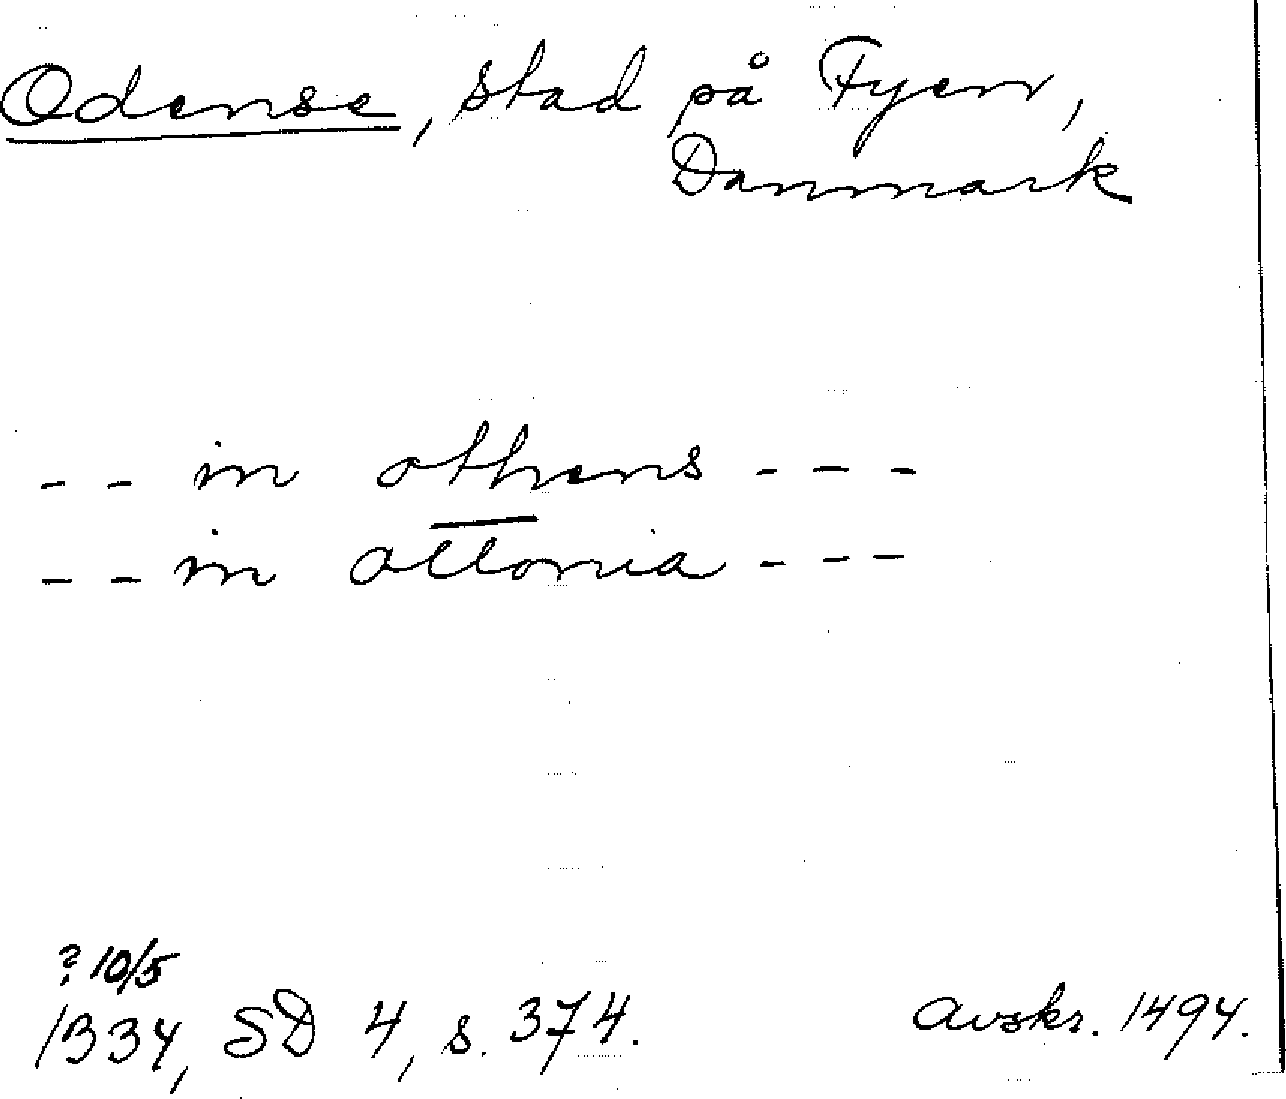 Odense, stad på Fyen,
Danmark
-- in othens ---
-- in ottonia ---
? 10/5
1334, SD 4, s. 374. Avskr. 1494.